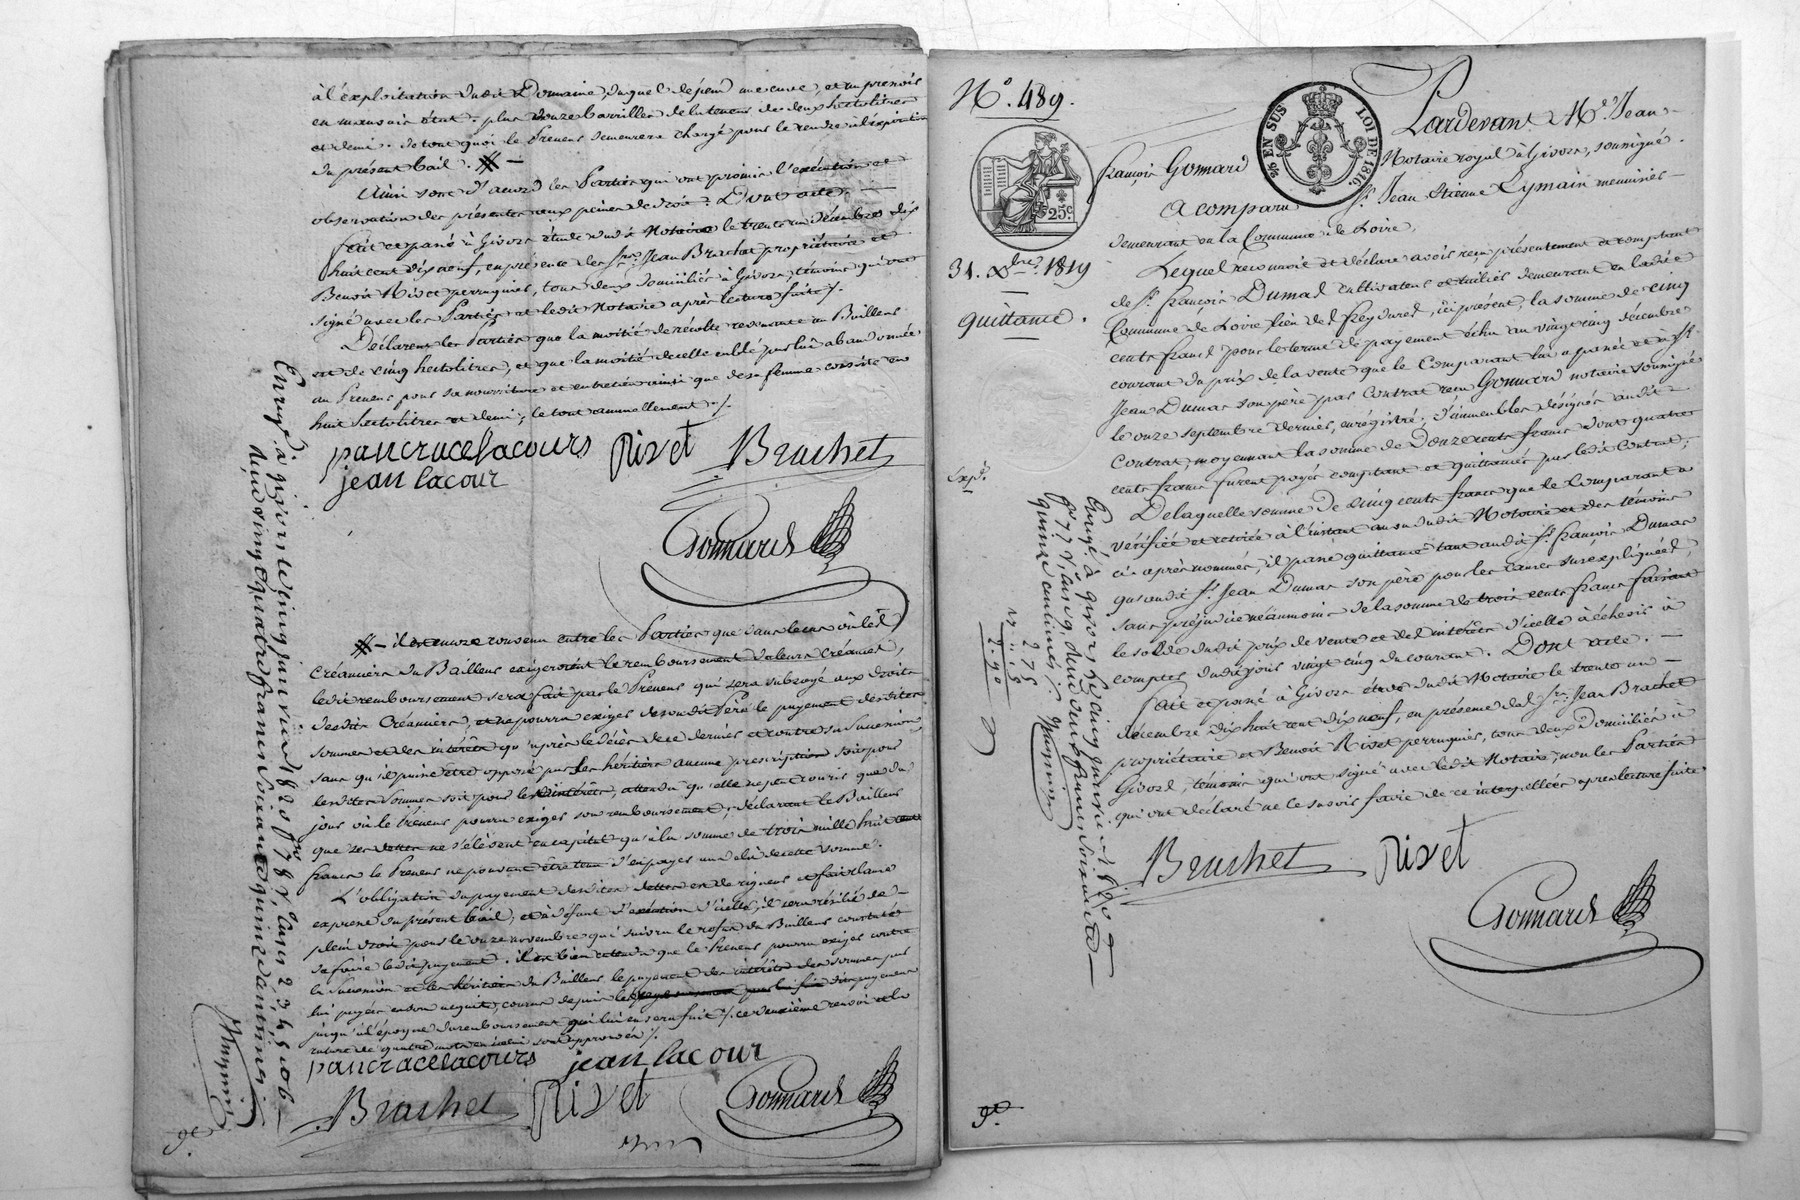 à l'exploitation dudit Domaine, duquel dépend une cuve, et un pressoir
en mauvais état. plus douze barrilles de la teneur de deux hectolitres
et demi. de tout quoi le Preneur demeurera chargé pour le rendre à l'expiration
du présent bail. —
Ainsi sont d'accord les Parties qui ont promis l'exécution et
observation des présentes aux peines de droit. Dont acte. —
fait et passé à Givors étude dudit Notaire le trente un décembre dix
huit cent dix neuf, en présence des Srs Jean Brachet propriétaire et
Benoit Rivet perruquier, tous deux domiciliés à Givors, témoins qui ont
signé avec les Parties et ledit Notaire après lecture faite /.
Déclarent les Parties que la moitié de récolte revenante au Bailleur
est de cinq hectolitres, et que la moitié de celle en blé par lui abandonnée
au Preneur pour sa nourriture et entretien ainsi que de sa femme consiste en
huit hectolitres et demi; le tout annuellement /.
pancrace lacours Rivet Brachet
jean lacour
Gonnard
— il est encore convenu entre les Parties que dans le cas où les
Créanciers du Bailleur exigeroient le remboursement de leurs Créances,
ledit remboursement sera fait par le Preneur qui sera subrogé aux droits
desdits Créanciers, et ne pourra exiger de sondit Père le payement desdites
sommes et des intérêts qu'après le décès de ce dernier et contre sa succession
sans qu'il puisse être opposé par les héritiers aucune prescription soit pour
lesdites sommes soit pour les intérêts, attendu qu'elle ne peut courir que du
jour où le Preneur pourra exiger son remboursement; déclarant le Bailleur
que ses dettes ne s'élèvent en capital qu'à la somme de trois mille huit cent
francs le Preneur ne pouvant être tenu d'en payer au delà de cette somme.
L'obligation du payement desdites dettes est de rigueur et fait clause
expresse du présent bail, et à défaut d'exécution d'icelle, il sera résilié de
plein droit pour le onze novembre qui suivra le refus du Bailleur constaté
de faire ledit payement. il est bien entendu que le Preneur pourra exiger contre
la Succession et les héritiers du Bailleur le payement des intérêts des sommes par
lui payées en son acquit, courus depuis le dit payement
jusqu'à l'époque du remboursement qui lui en sera fait /. ce deuxième renvoi et la
rature de quatre mots en icelui sont approuvés /.
pancrace lacours jean lacour
Brachet Rivet Gonnard
Enregé. à givors le cinq janvier 1820 fo 78 Vo, Cases 2 3 4 5 et 6 —
Reçu vingt quatre francs soixante quinze centimes
No. 489.
2/10 EN SUS LOI DE 1816.
25c
31. Xbre. 1819
quittance.
Expe.
Pardevant Me. Jean
françois Gonnard Notaire royal à Givors, soussigné.
A comparu Sr. Jean Etienne Eymain menuisier
demeurant en la Commune de Loire,
Lequel reconnoit et déclare avoir reçu présentement et comptant
de Sr. françois Dumas cultivateur et tuilier demeurant en ladite
Commune de Loire lieu des freydures, ici présent, la somme de cinq
cents francs pour le terme de payement échu au vingt cinq décembre
courant du prix de la vente que le Comparant lui a passée et à Sr.
Jean Dumas son père par Contrat reçu Gonnard notaire soussigné
le onze septembre dernier, enregistré; d'immeubles désignés audit
Contrat, moyennant la somme de Douze cents francs dont quatre
cents francs furent payés comptant et quittancés par ledit Contrat;
De laquelle somme de cinq cents francs que le Comparant a
vérifiée et retirée à l'instant au vu dudit Notaire et des témoins
ci-après nommés, il passe quittance tant audit Sr. françois Dumas
qu'audit Sr. Jean Dumas son père pour les causes sus expliquées;
sans préjudice néanmoins de la somme de trois cents francs faisant
le solde dudit prix de vente et des intérêts d'icelle à échoir à
compter dudit jour vingt cinq du courant. Dont acte. —
fait et passé à Givors étude dudit Notaire le trente un —
décembre dix huit cent dix neuf, en présence des Srs. Jean Brachet
propriétaire et Benoit Rivet perruquier, tous deux Domiciliés à
Givors, témoins qui ont signé avec ledit Notaire, non les Parties
qui ont déclaré ne le savoir faire de ce interpellées après lecture faite.
Brachet Rivet
Gonnard
Enregé. à givors le cinq janvier 1820
fo 77 Vo, Case 9, Reçu deux francs soixante
quinze centimes /.
2 75
15
2. 90